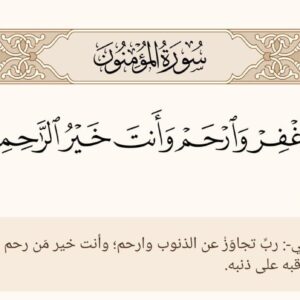 سُورَةُ المُؤْمِنُونَ
وَٱرْحَمْ وَأَنتَ خَيْرُ ٱلرَّ
ربِّ تجاوَزْ عن الذنوب وارحم؛ وأنت خير مَن رحم
على ذنبه.